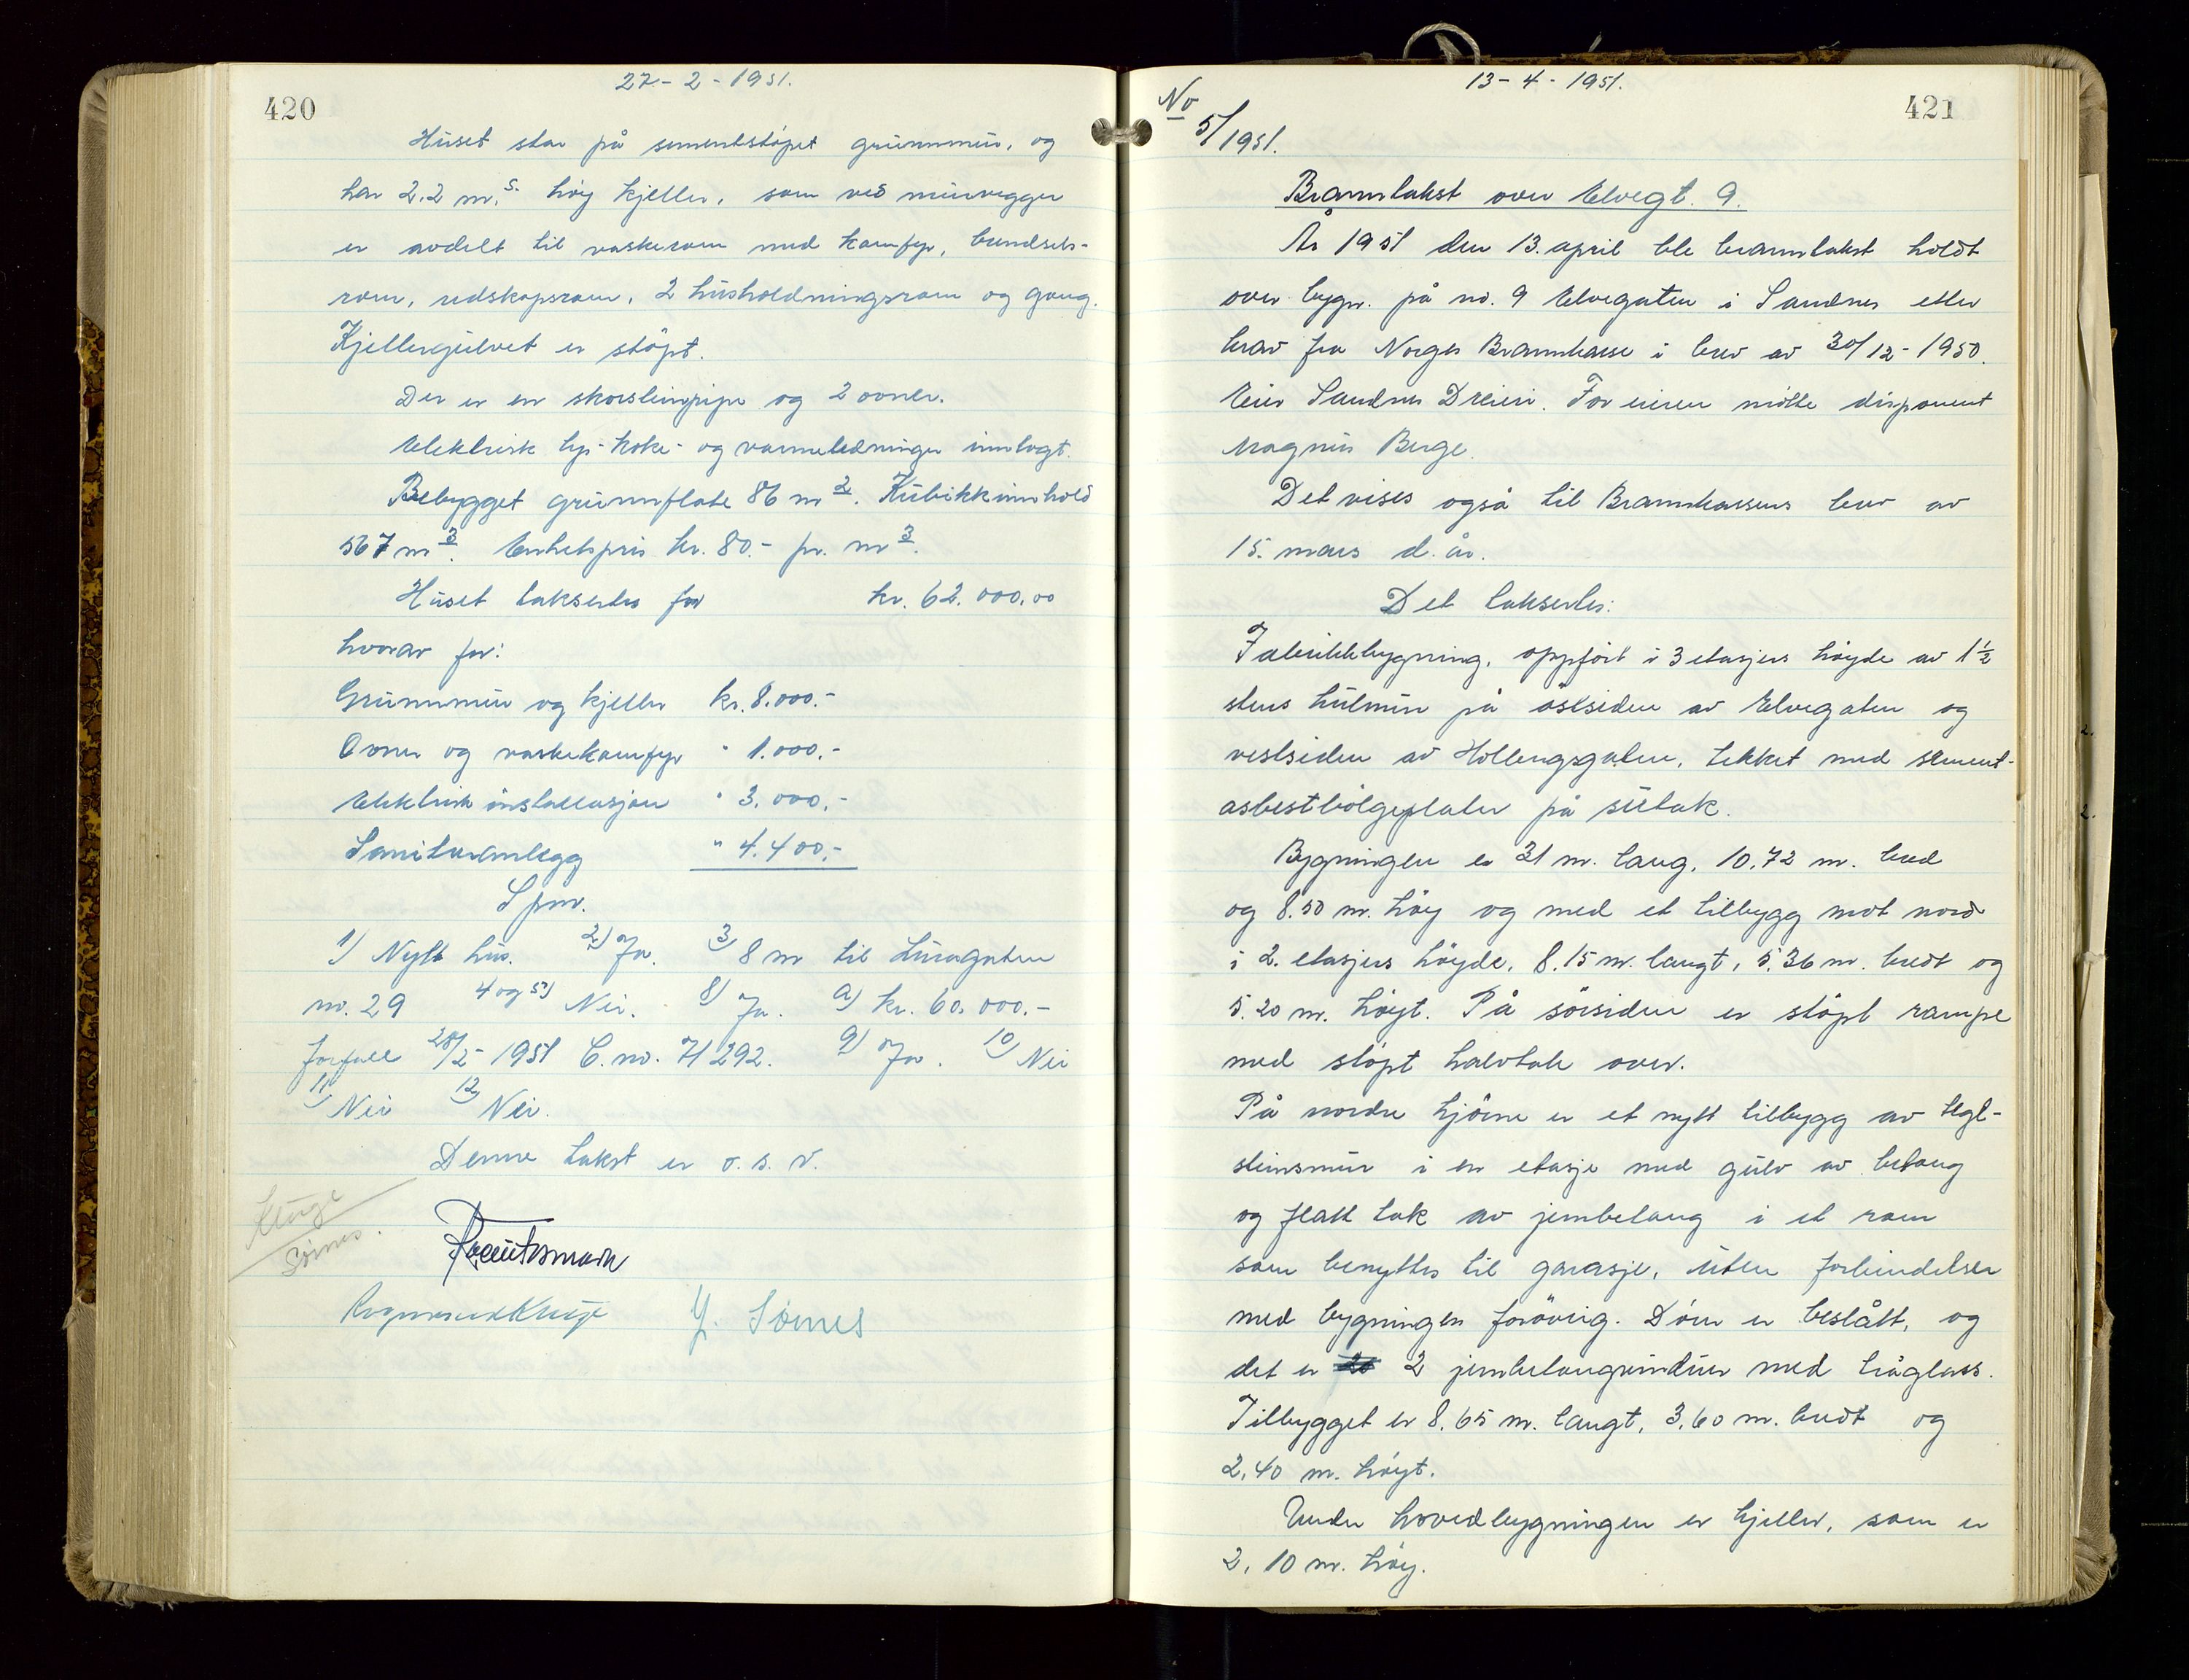 27-2-1951.
420
Huset står på sementstøpet grunnmur, og
har 2.2 m.s. høy kjeller, som ved murvegger
er avdelt til vaskerom med komfyr, brendsels-
rom, redskapsrom, 2 husholdningsrom og gang.
Kjellergulvet er støpt.
Der er en skorsteinpipe og 2 ovner.
Elektrisk lys- koke- og varmeledninger innlagt.
Bebygget grunnflate 86 m2. Kubikkinnhold
567 m3. Enhetspris kr. 80.- pr. m3.
Huset takseres for kr. 62.000,00
hvorav for:
Grunnmur og kjeller kr. 8.000.-
Ovner og vaskekomfyr " 1.000.-
Elektrisk installasjon " 3.000.-
Sanitæranlegg " 4.400.-
Spm.
1) Nytt hus. 2) Ja. 3) 8 m til Luragaten
nr. 29 4 og 5) Nei. 8) Ja. a) kr. 60.000.-
forfall 28/2-1951 C. nr. 71292. 9) Ja. 10) Nei
11) Nei 12) Nei.
Denne takst er o.s.v.
Kluge
Sømes.
Rognvald Kluge Y. Sømes
13-4-1951.
421
No 5/1951.
Branntakst over Elvegt. 9.
År 1951 den 13. april ble branntakst holdt
over bygn. på nr. 9 Elvegaten i Sandnes etter
krav fra Norges Brannkasse i brev av 30/12-1950.
Eier Sandnes Dreieri. For eieren møtte disponent
Magnus Berge.
Det vises også til Brannkassens brev av
15. mars d. år.
Det takseres:
Fabrikkbygning, oppført i 3 etasjers høyde av 1½
stens hulmur på østsiden av Elvegaten og
vestsiden av Hollengsgaten, tekket med sement-
asbestbølgeplater på sutak.
Bygningen er 31 m. lang, 10,72 m. bred
og 8.50 m. høy og med et tilbygg mot nord
i 2. etasjers høyde, 8.15 m. langt, 5.36 m. bredt og
5.20 m. høyt. På sørsiden er støpt rampe
med støpt halvtak over.
På nordre hjørne er et nytt tilbygg av tegl-
steinsmur i en etasje med gulv av betong
og flatt tak av jernbetong i et rom
som benyttes til garasje, uten forbindelser
med bygningen forøvrig. Dører er beslått, og
det er 2 jernbetongvinduer med tråglass.
Tilbygget er 8.65 m. langt, 3,60 m. bredt og
2,40 m. høyt.
Under hovedbygningen er kjeller, som er
2,10 m. høy.